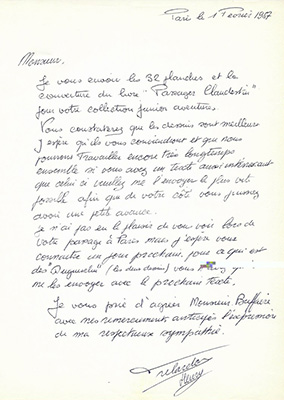 Paris le 1 Fevrier 1967
Monsieur.
Je vous envoie les 32 planches et la
couverture du livre "Passages Clandestins"
pour votre collection junior aventures.
Vous constaterez que les dessins sont meilleurs
J'espère qu'ils vous conviendront et que nous
pourrons travailler encore très longtemps
ensemble si vous avez un texte aussi intéressant
que celui ci veuillez me l'envoyer le plus vite
possible afin que de votre côté vous puissiez
avoir une petite avance.
Je n'ai pas eu le plaisir de vous voir lors de
votre passage à Paris mais j'espère vous
connaitre un jour prochain, pour ce qui est
des (les deux dessins) vous
me les envoyez avec le prochain texte.
Je vous prie d'agréer Monsieur Buffière
avec mes remerciements anticipés l'expression
de ma respectueuse sympathie.